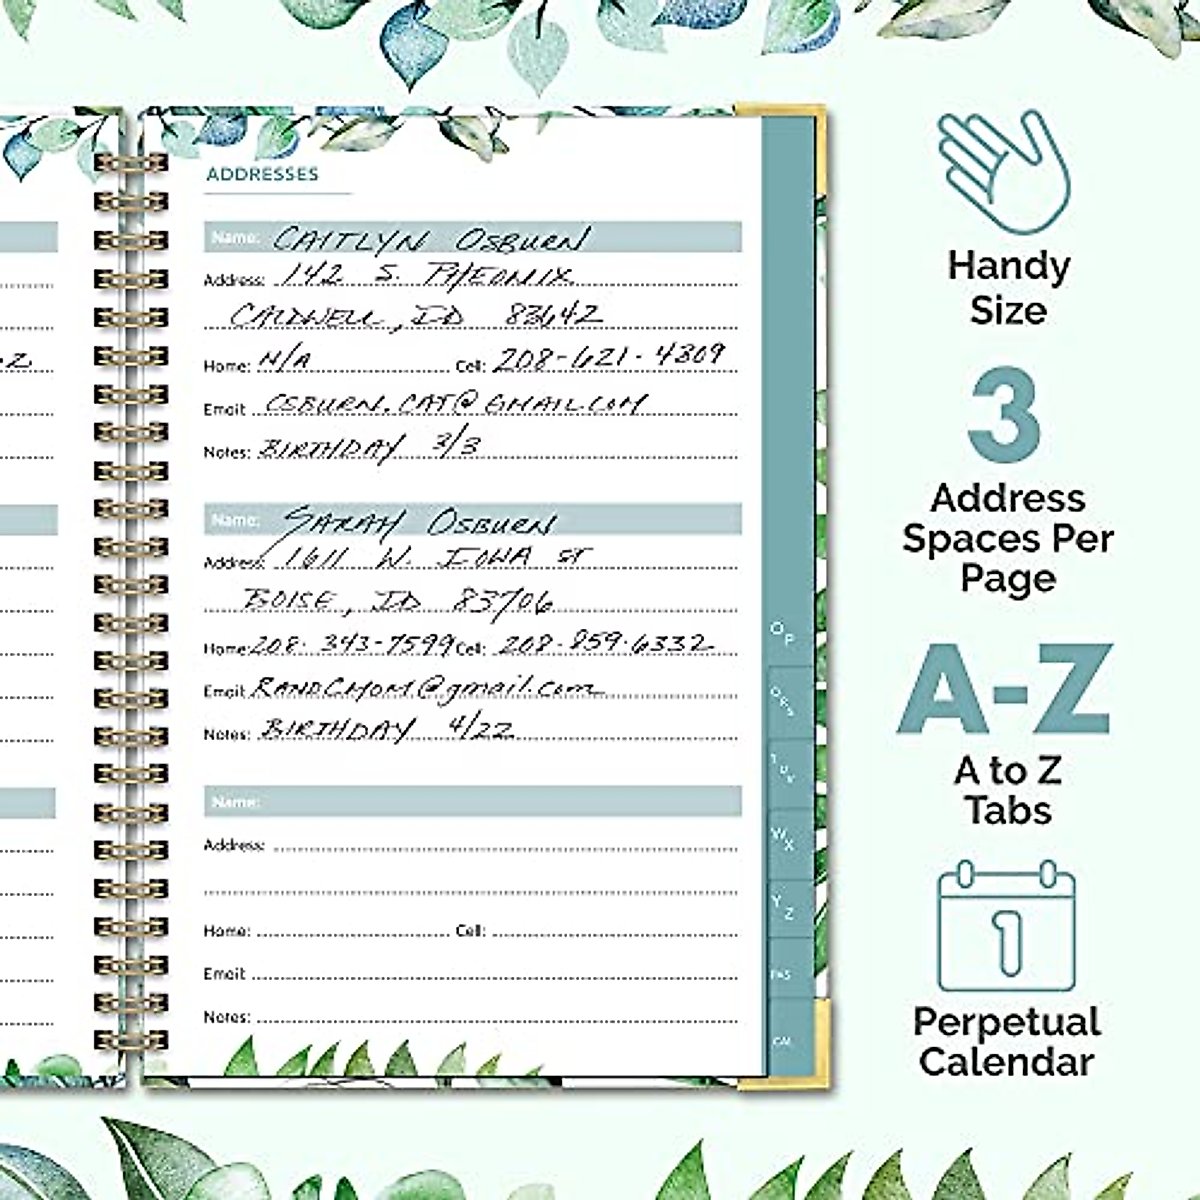 ADDRESSES
Name: CAITLYN OSBURN
Address: 142 S. PHEONIX
CALDWELL, ID 83642
Home: N/A Cell: 208-621-4309
Email: OSBURN.CAT@GMAIL.COM
Notes: BIRTHDAY 3/3
Name: SARAH OSBURN
Address: 1611 W. IOWA ST
BOISE, ID 83706
Home: 208-343-7599 Cell: 208-859-6332
Email: RANDCMOM@gmail.com
Notes: BIRTHDAY 4/22
Name:
Address:
Home: Cell:
Email:
Notes:
O P
Q R S
T U V
W X
Y Z
PAS
CAL
Handy
Size
3
Address
Spaces Per
Page
A-Z
A to Z
Tabs
1
Perpetual
Calendar